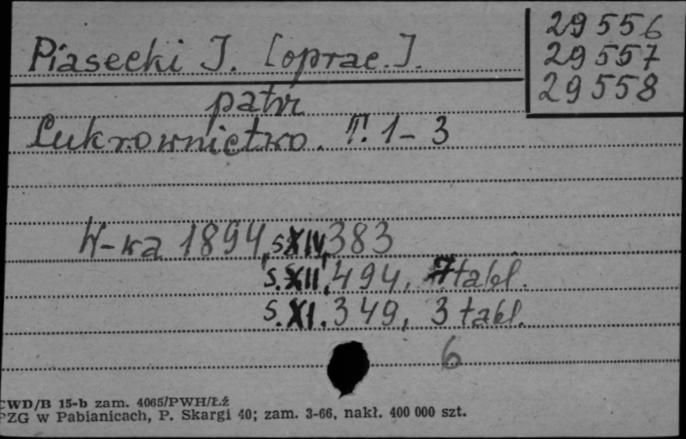 29556
29557
29558
Piasecki J. [oprac.].
patr
Cukrownictwo. T. 1-3
W-wa 1894, s.XIV, 383
s.XII, 494, 7 tabl.
s.XI, 349, 3 tabl.
6
CWD/B 15-b zam. 4065/PWH/Łź
PZG w Pabianicach, P. Skargi 40; zam. 3-66, nakł. 400 000 szt.